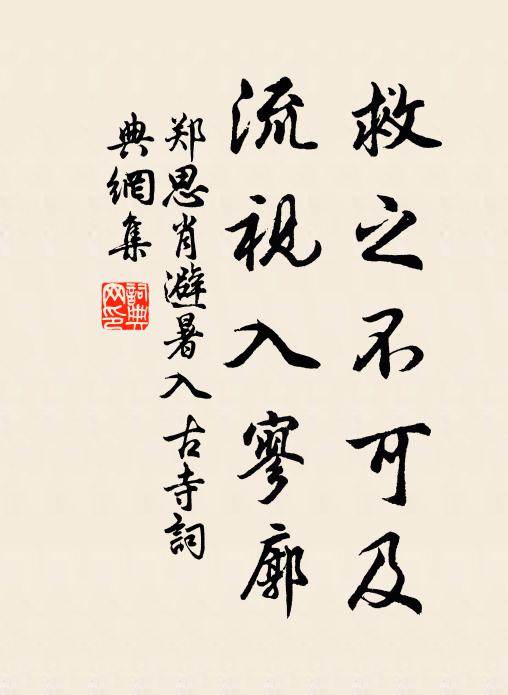 救之不可及
流視入寥廓
郑思肖避暑入古寺詞
典網集
詞典网印